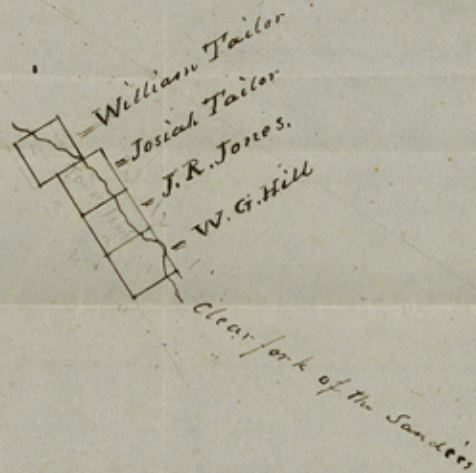 William Tailor
Josiah Tailor
J. R. Jones.
W. G. Hill
Clear fork of the Sandies